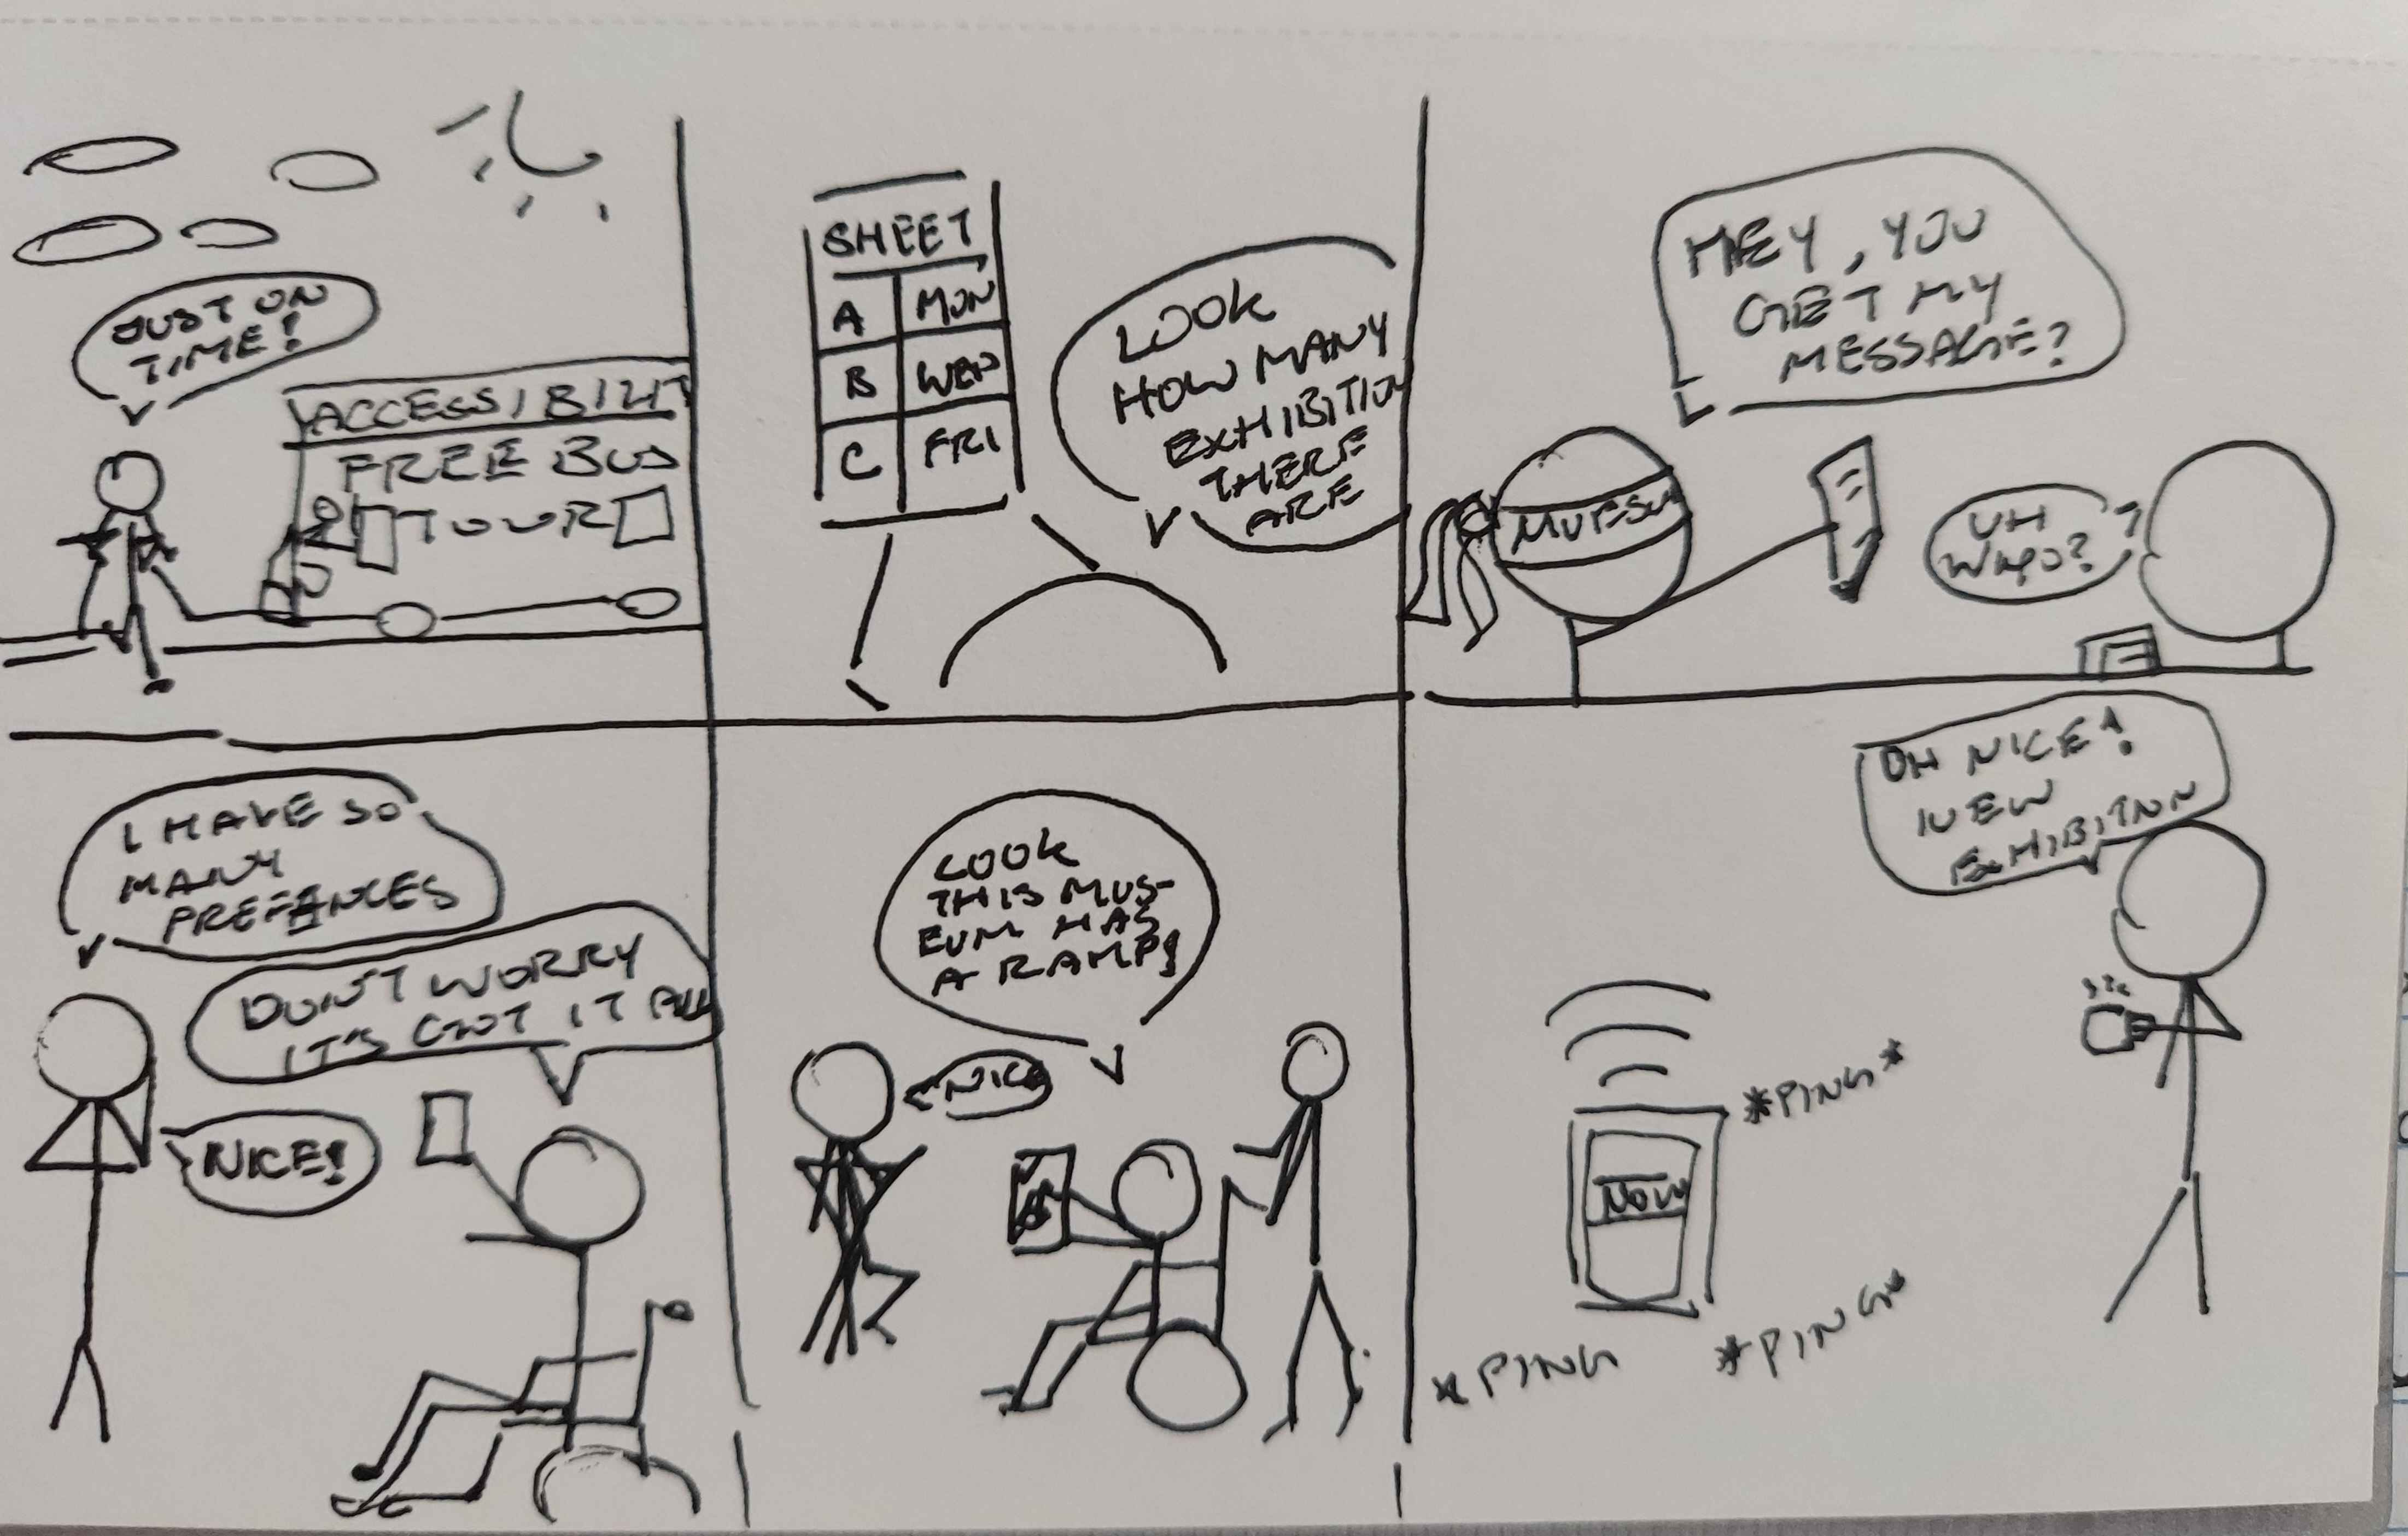 JUST ON
TIME!
ACCESSIBILIT
FREE BUS
TOUR
SHEET
A MON
B WED
C FRI
LOOK
HOW MANY
EXHIBITION
THERE
ARE
HEY, YOU
GET MY
MESSAGE?
UH
WHO?
?
I HAVE SO
MANY
PREFERANCES
DON'T WORRY
IT'S GOT IT ALL
NICE!
LOOK
THIS MUS-
EUM HAS
A RAMP!
NICE
OH NICE!
NEW
EXHIBITION
*PING*
NOW
*PING*
*PING